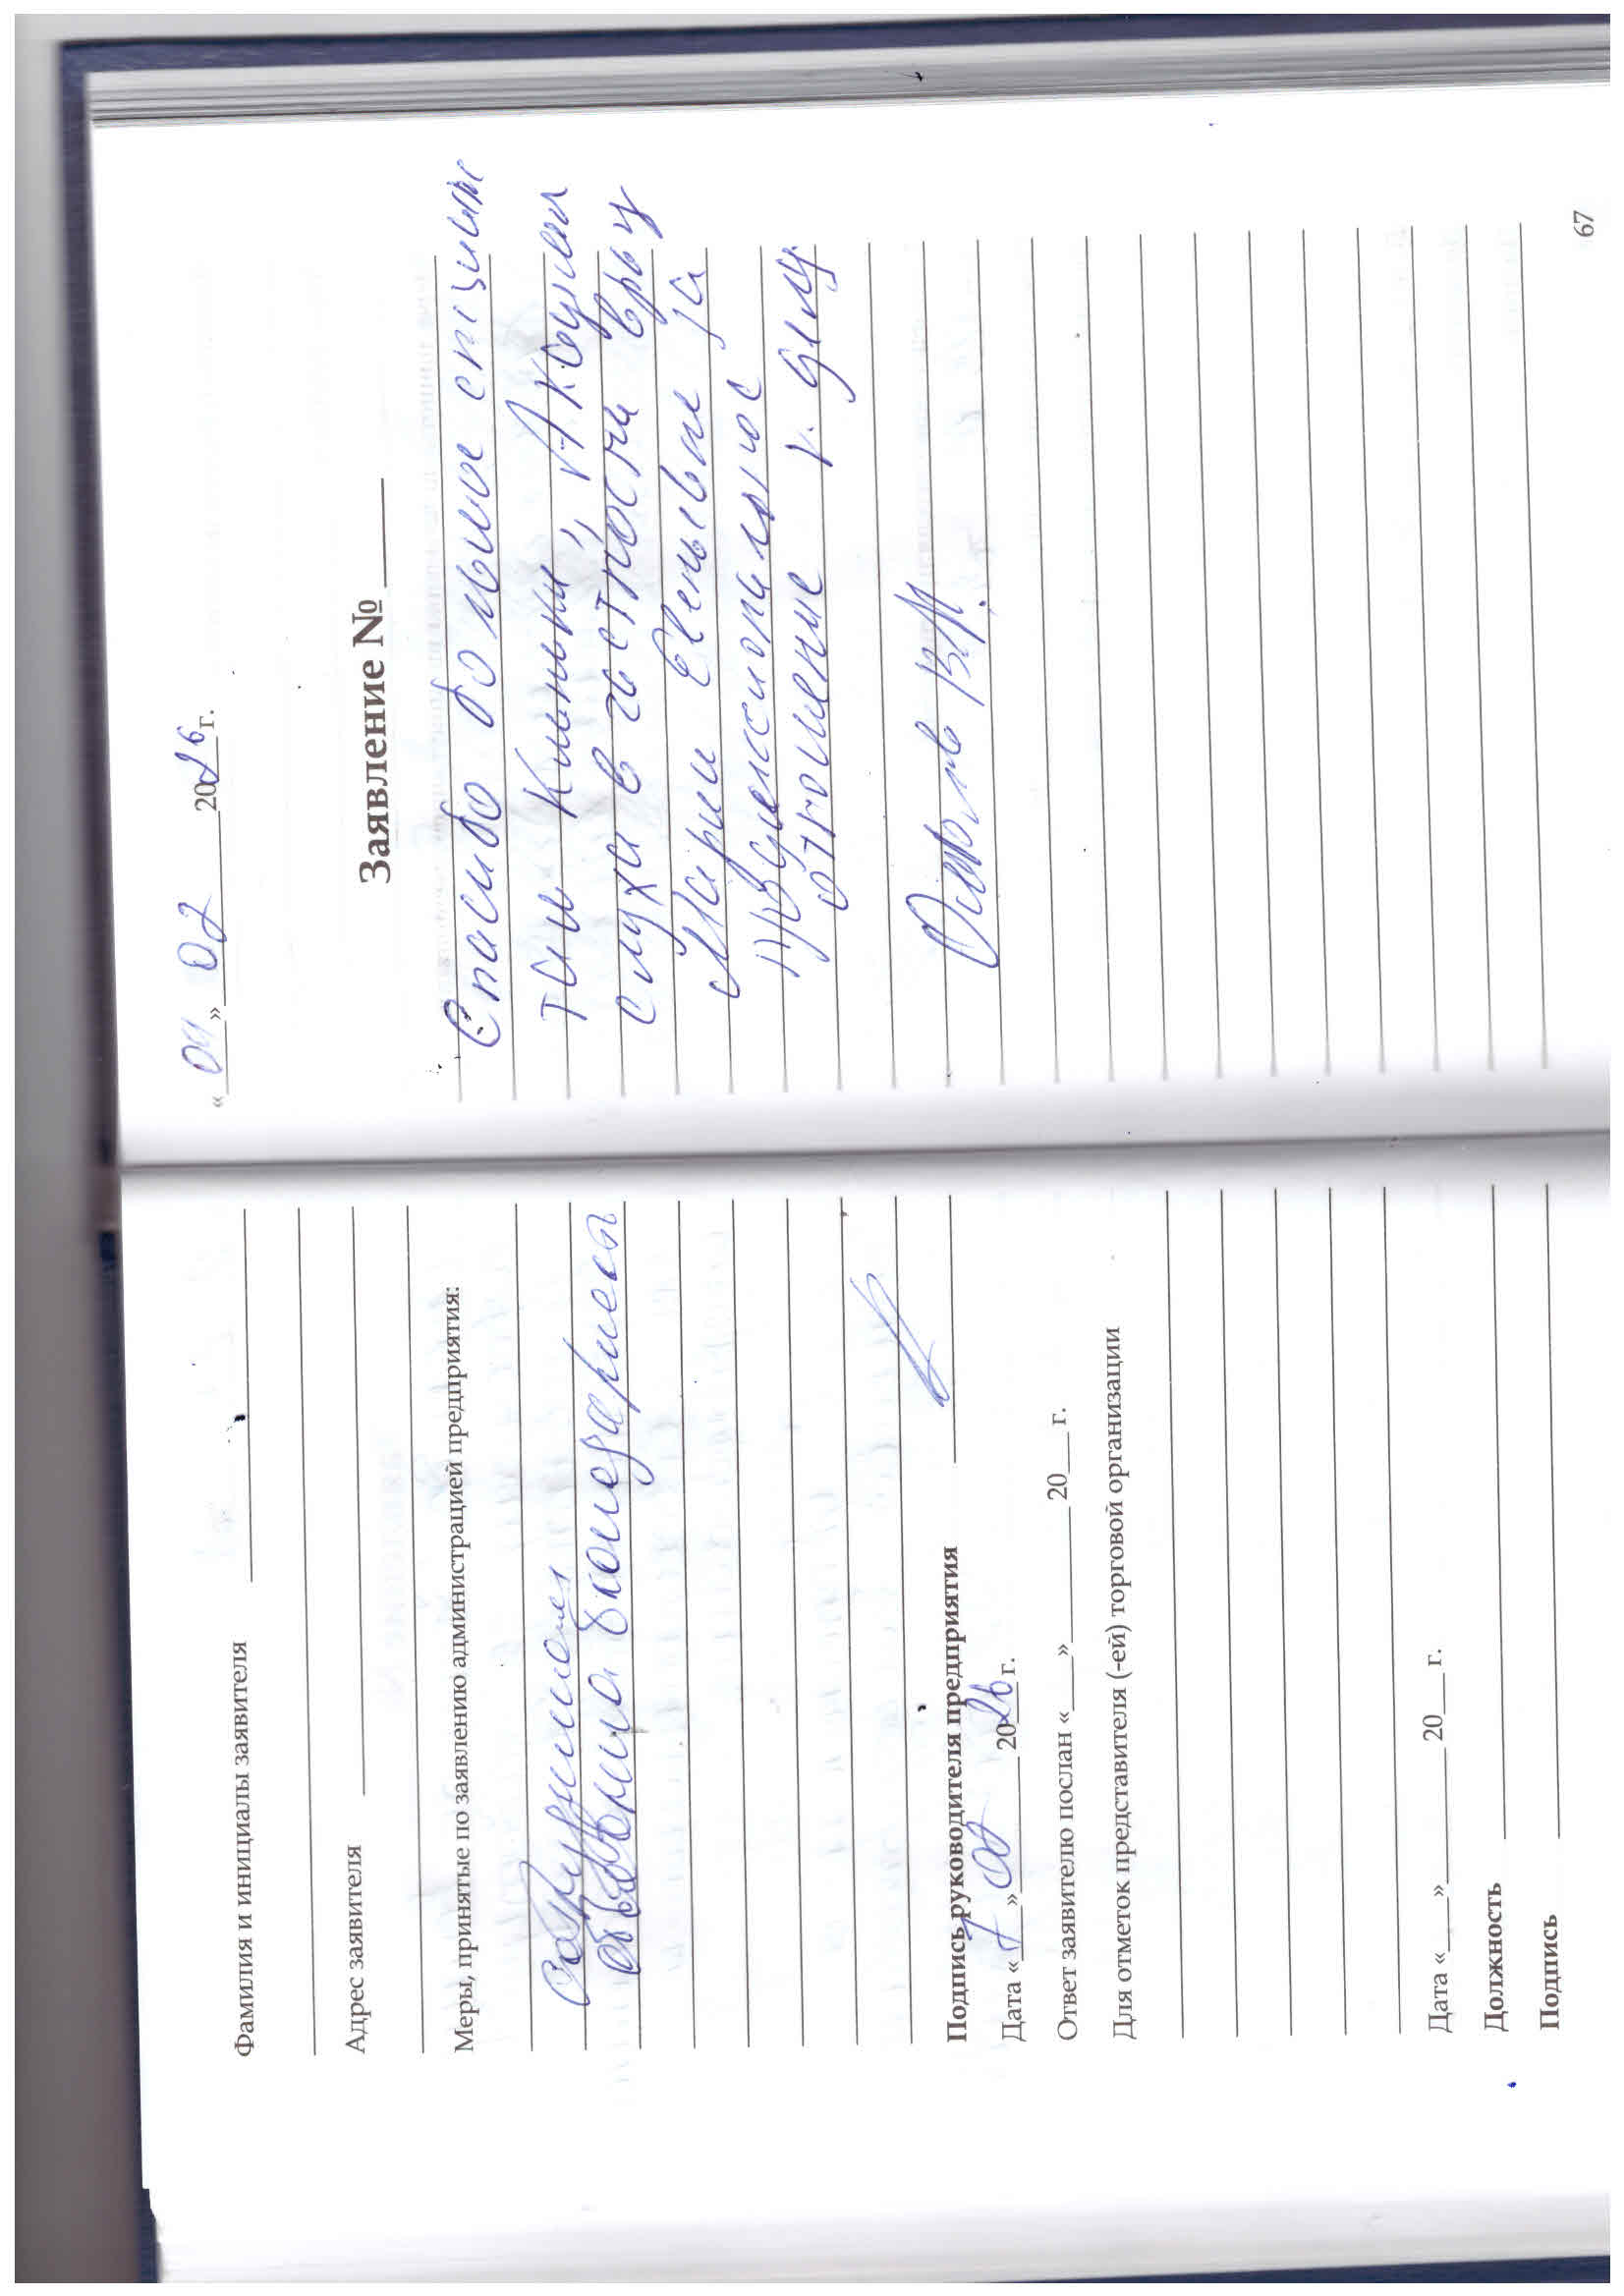 Фамилия и инициалы заявителя
Адрес заявителя
Меры, принятые по заявлению администрацией предприятия:
объявлена благодарность
Подпись руководителя предприятия
Дата «__» 02 2026 г.
Ответ заявителю послан «___»________ 20___ г.
Для отметок представителя (-ей) торговой организации
Дата «___»________ 20___ г.
Должность
Подпись
«09» 02 2026 г.
Заявление № ____
Спасибо большое специалис
там Клиники "Академия
слуха в частности врачу
Марии Евгеньевне за
профессиональное
отношение к делу
67